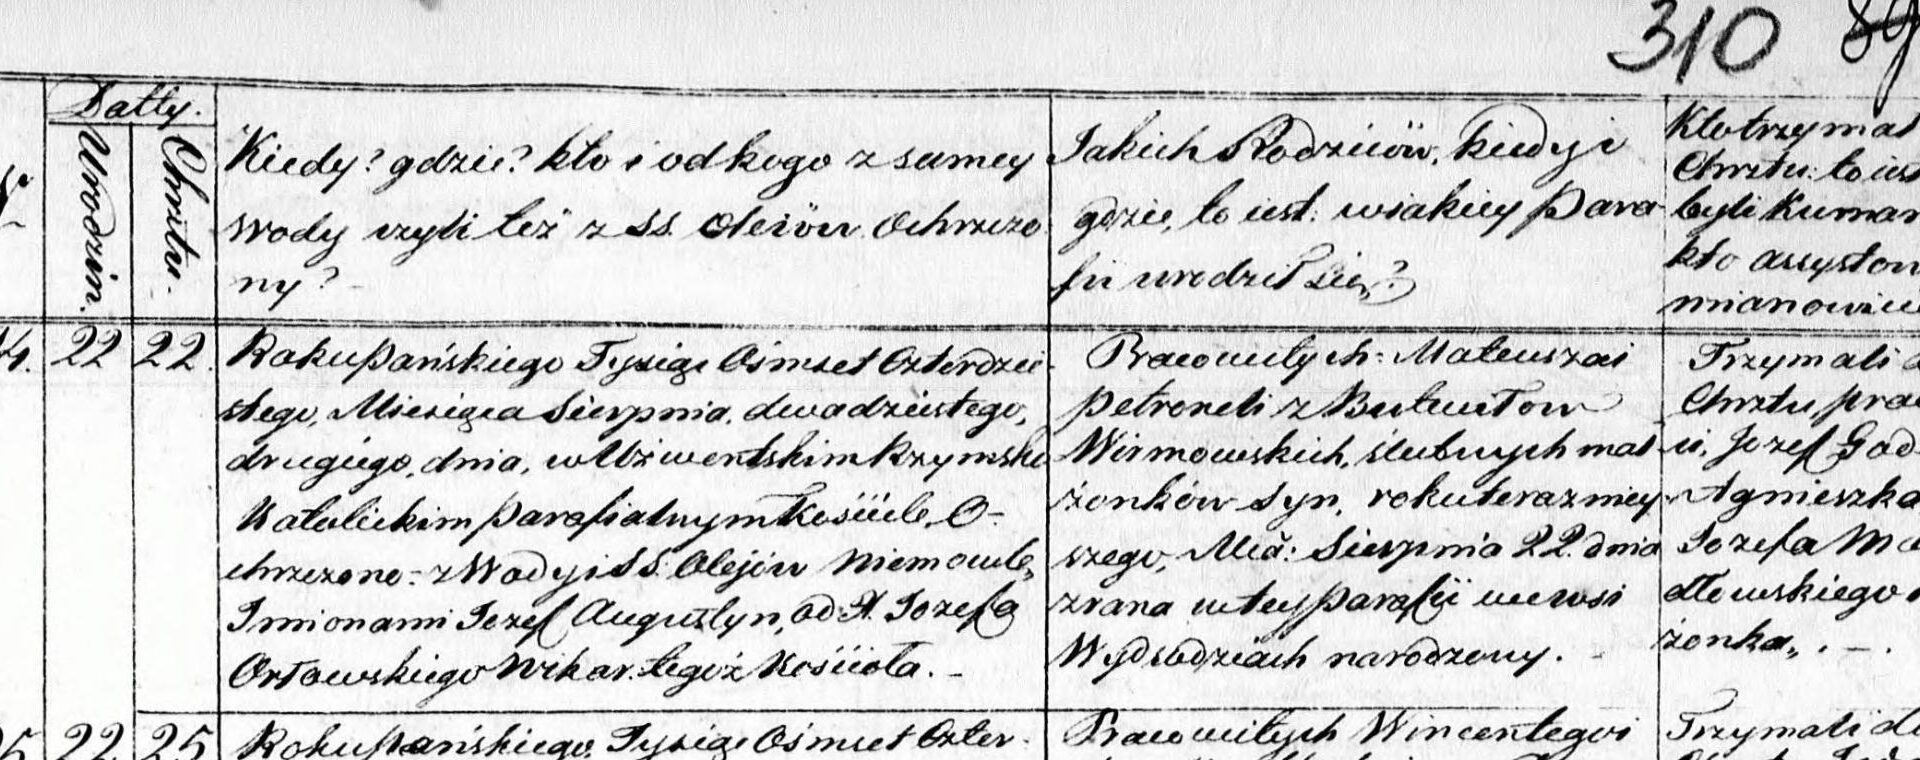 310 89
Datty.
Urodzin.
Chrztu.
Kiedy? gdzie? kto i od kogo z samey
wody czyli też z SS. Oleiów Ochrzczo
ny?
Jakich Rodziców, kiedy i
gdzie, to iest: w iakiey Para-
fii urodził się?
Kto trzymał
Chrztu: to iest
byli Kumam
kto assyston
mianowicie
4. 22 22.
Roku Pańskiego Tysiąc Ośmset Czterdzie-
stego, Miesiąca Sierpnia. dwadziestego,
drugiego, dnia, w Użwentskim Rzymsko
Katolickim parafialnym Kościele, O-
chrzczono: z Wody i SS. Olejów Niemowle,
Imionami Jozef Augustyn, od X. Jozefa
Orłowskiego Wikar. tegoż Kościoła. -
Pracowitych: Mateusza i
Petroneli z Butwiłow
Wirmowskich, ślubnych mał-
żonków Syn, roku terazniey-
szego, Mca: Sierpnia 22. dnia
zrana w tey parafii we wsi
Wydsodziach narodzony. -
Trzymali d
Chrztu, prac
i, Jozef God-
Agnieszka
Jozefa Ma
dłowskiego
żonka,. - .
5 22 25
Roku Pańskiego, Tysiąc Ośmset Czter-
Pracowitych Wincentego i
Trzymali do